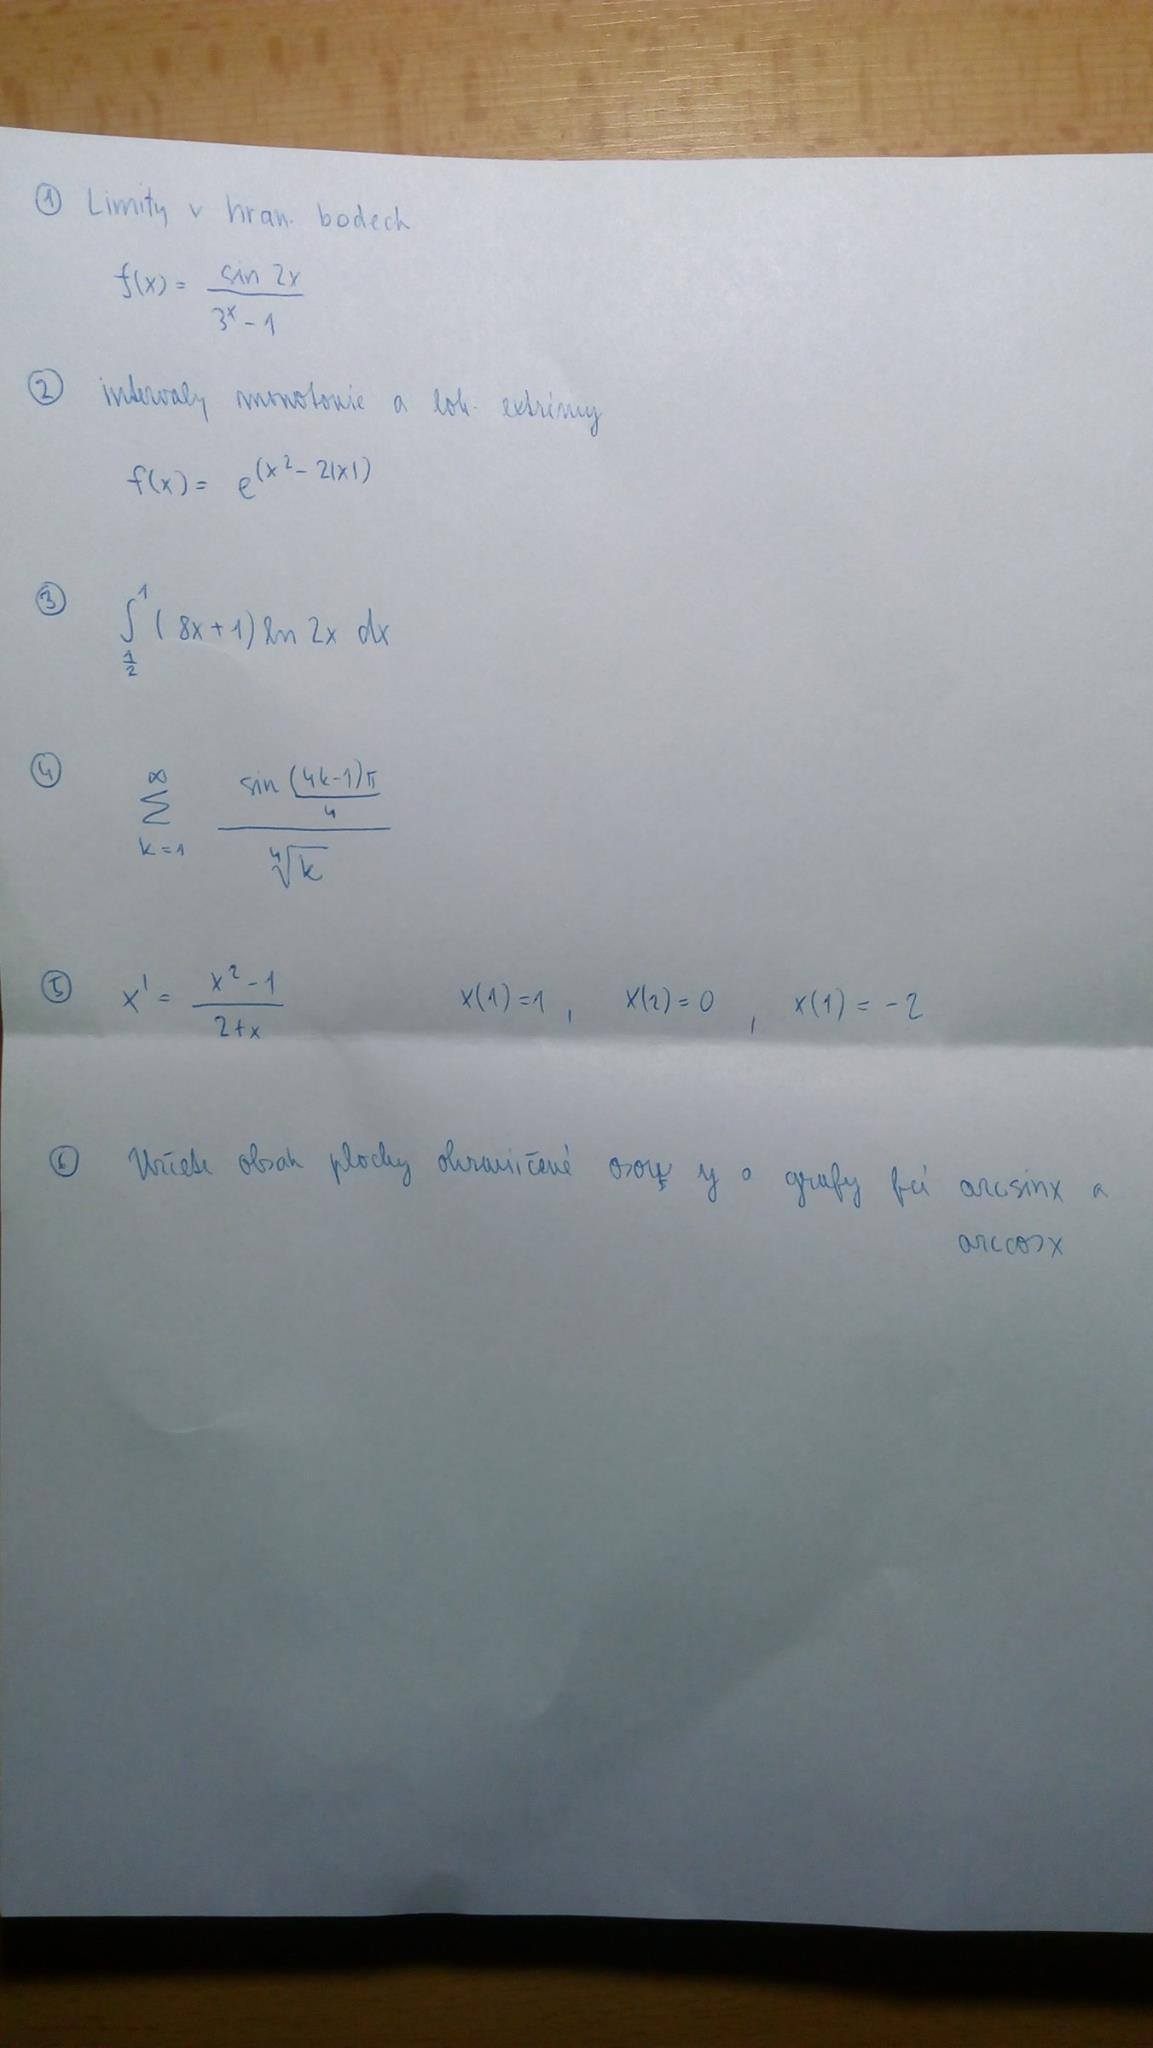 ① Limity v hran. bodech
f(x) = sin 2x / 3^x - 1
② intervaly monotonie a lok. extrémy
f(x) = e^(x² - 2|x|)
③ ∫_{1/2}^{1} (8x+1) ln 2x dx
④ ∑_{k=1}^{∞} sin (4k-1)π/4 / ∜k
⑤ x' = x² - 1 / 2+x    x(1)=1 , x(2)=0 , x(1) = -2
⑥ Určete obsah plochy ohraničené osou y a grafy fcí arcsinx a
arccosx